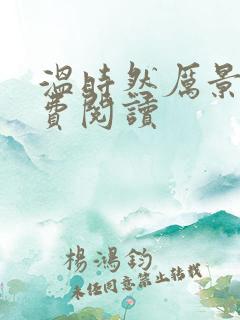 温時然厲景
費閱讀
楊鴻鈞
未經同意禁止轉載